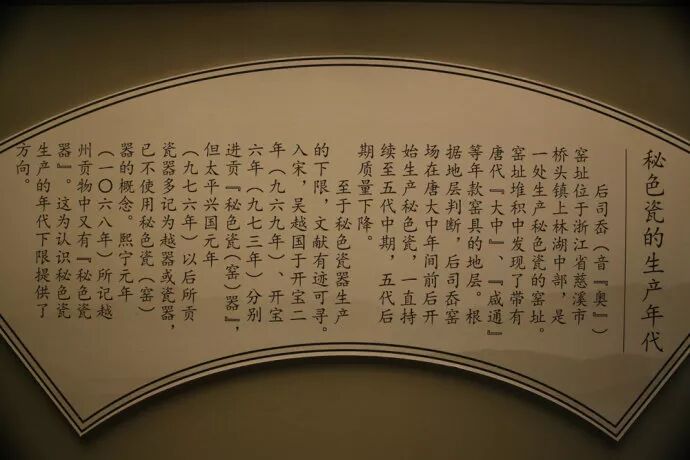 秘色瓷的生产年代
后司岙（音『奥』）
窑址位于浙江省慈溪市
桥头镇上林湖中部，是
一处生产秘色瓷的窑址。
窑址堆积中发现了带有
唐代『大中』、『咸通』
等年款窑具的地层。根
据地层判断，后司岙窑
场在唐大中年间前后开
始生产秘色瓷，一直持
续至五代中期，五代后
期质量下降。
至于秘色瓷器生产
的下限，文献有迹可寻。
入宋，吴越国于开宝二
年（九六九年）、开宝
六年（九七三年）分别
进贡『秘色瓷（窑）器』，
但太平兴国元年
（九七六年）以后所贡
瓷器多记为越器或瓷器，
已不使用秘色瓷（窑）
器的概念。熙宁元年
（一〇六八年）所记越
州贡物中又有『秘色瓷
器』。这为认识秘色瓷
生产的年代下限提供了
方向。